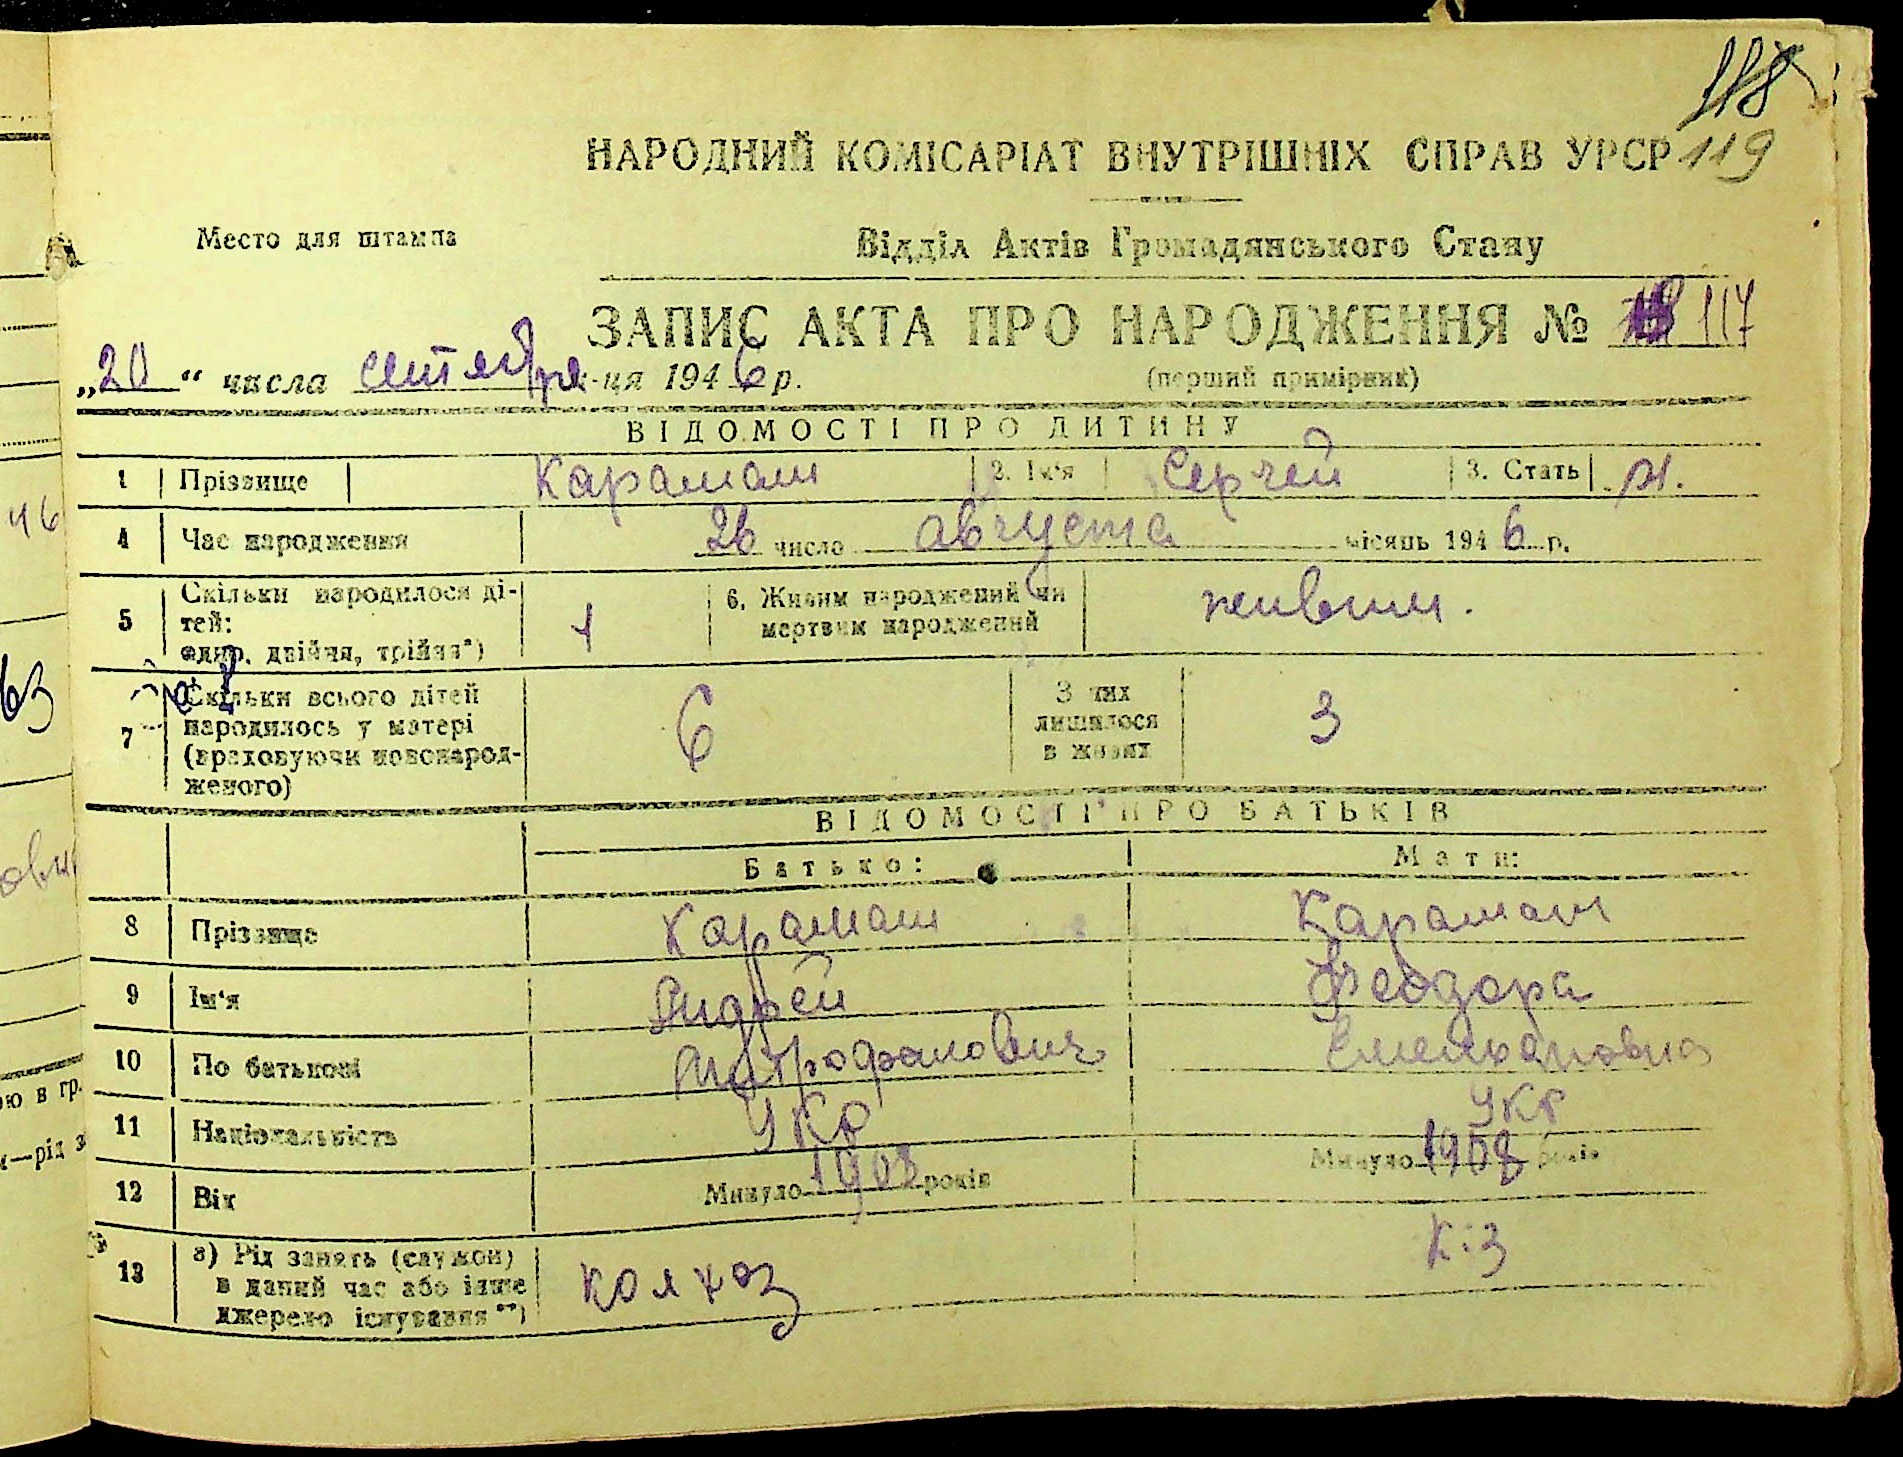 118
НАРОДНИЙ КОМІСАРІАТ ВНУТРІШНІХ СПРАВ УРСР 119
Место для штампа
Відділ Актів Громадянського Стану
ЗАПИС АКТА ПРО НАРОДЖЕННЯ № 117
„20“ числа сентября м-ця 1946 р.
(перший примірник)
ВІДОМОСТІ ПРО ДИТИНУ
1 Прізвище Караман 2. Ім'я Сергей 3. Стать м.
4 Час народження 26 число августа місяць 1946 р.
5 Скільки народилося дітей: одно, двійня, трійня*) 1 6. Живим народжений чи мертвим народжений живым.
7 Скільки всього дітей народилось у матері (враховуючи новонародженого) 6 З них лишилося в живих 3
ВІДОМОСТІ ПРО БАТЬКІВ
Батько: Мати:
8 Прізвище Караман Караман
9 Ім'я Андрей Феодора
10 По батькові Митрофанович Емельяновна
11 Національність Укр Укр
12 Вік Минуло 1908 років Минуло 1908 років
13 а) Рід занять (служби) в даний час або інше джерело існування**) колхоз к:з
46
63
ою в гр.
—рід з